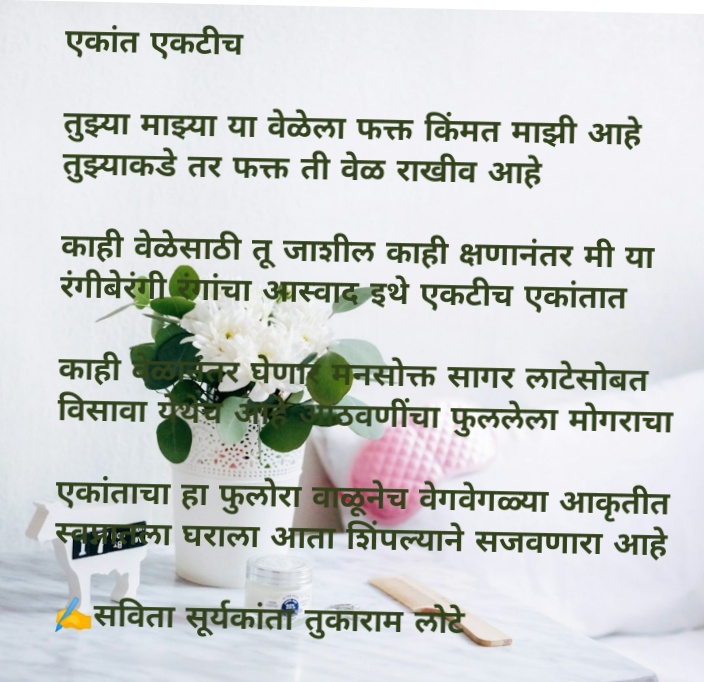 एकांत एकटीच
तुझ्या माझ्या या वेळेला फक्त किंमत माझी आहे
तुझ्याकडे तर फक्त ती वेळ राखीव आहे
काही वेळेसाठी तू जाशील काही क्षणानंतर मी या
रंगीबेरंगी रंगांचा आस्वाद इथे एकटीच एकांतात
काही वेळानंतर घेणार मनसोक्त सागर लाटेसोबत
विसावा येथेच आहे आठवणींचा फुललेला मोगराचा
एकांताचा हा फुलोरा वाळूनेच वेगवेगळ्या आकृतीत
घराला आता शिंपल्याने सजवणारा आहे
✍️सविता सूर्यकांता तुकाराम लोटे